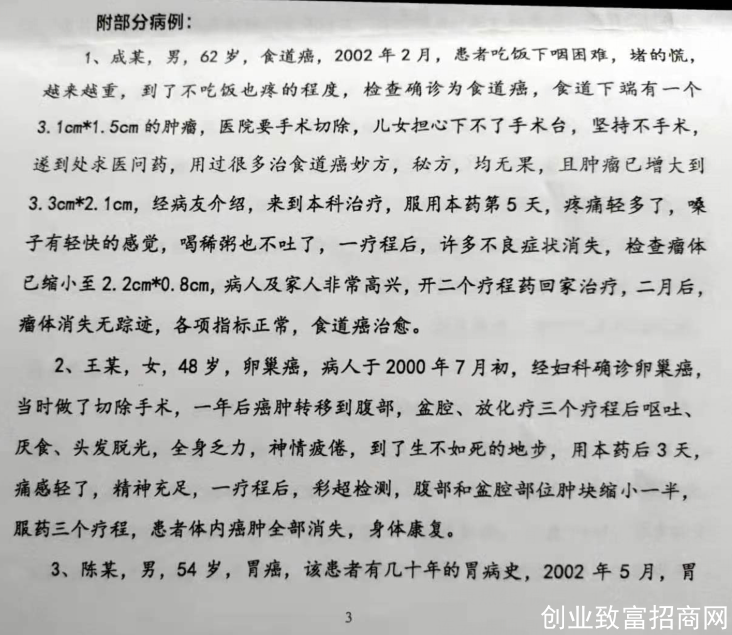 附部分病例：
1、成某，男，62岁，食道癌，2002年2月，患者吃饭下咽困难，堵的慌，
越来越重，到了不吃饭也疼的程度，检查确诊为食道癌，食道下端有一个
3.1cm*1.5cm的肿瘤，医院要手术切除，儿女担心下不了手术台，坚持不手术，
遂到处求医问药，用过很多治食道癌妙方，秘方，均无果，且肿瘤已增大到
3.3cm*2.1cm，经病友介绍，来到本科治疗，服用本药第5天，疼痛轻多了，嗓
子有轻快的感觉，喝稀粥也不吐了，一疗程后，许多不良症状消失，检查瘤体
已缩小至2.2cm*0.8cm，病人及家人非常高兴，开二个疗程药回家治疗，二月后，
瘤体消失无踪迹，各项指标正常，食道癌治愈。
2、王某，女，48岁，卵巢癌，病人于2000年7月初，经妇科确诊卵巢癌，
当时做了切除手术，一年后癌肿转移到腹部，盆腔、放化疗三个疗程后呕吐、
厌食、头发脱光，全身乏力，神情疲倦，到了生不如死的地步，用本药后3天，
痛感轻了，精神充足，一疗程后，彩超检测，腹部和盆腔部位肿块缩小一半，
服药三个疗程，患者体内癌肿全部消失，身体康复。
3、陈某，男，54岁，胃癌，该患者有几十年的胃病史，2002年5月，胃
3
创业致富招商网